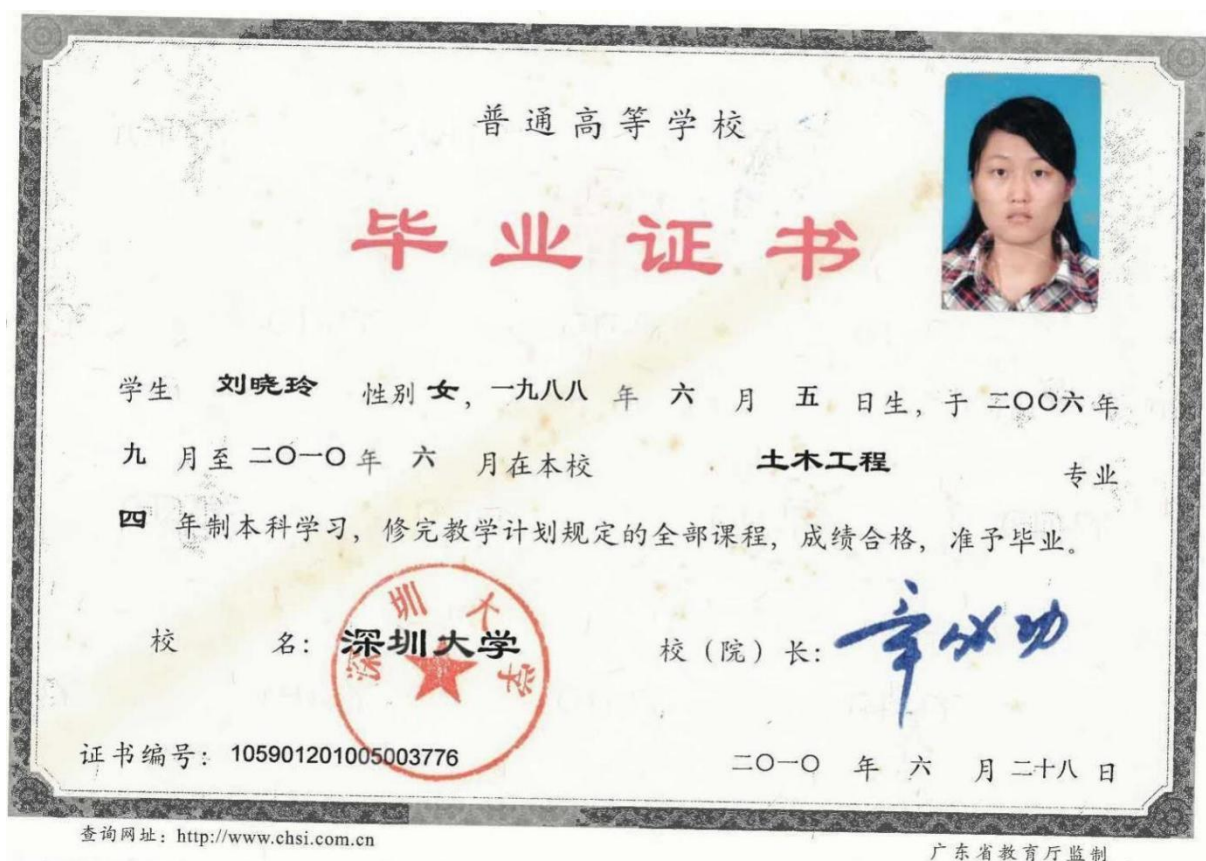 普通高等学校
毕业证书
学生 刘晓玲 性别 女，一九八八 年 六 月 五 日生，于 二〇〇六 年
九 月至 二〇一〇 年 六 月在本校 土木工程 专业
四 年制本科学习，修完教学计划规定的全部课程，成绩合格，准予毕业。
深圳大学
校 名：深圳大学 校（院）长：章必功
证书编号：105901201005003776 二〇一〇 年 六 月 二十八 日
查询网址：http://www.chsi.com.cn 广东省教育厅监制